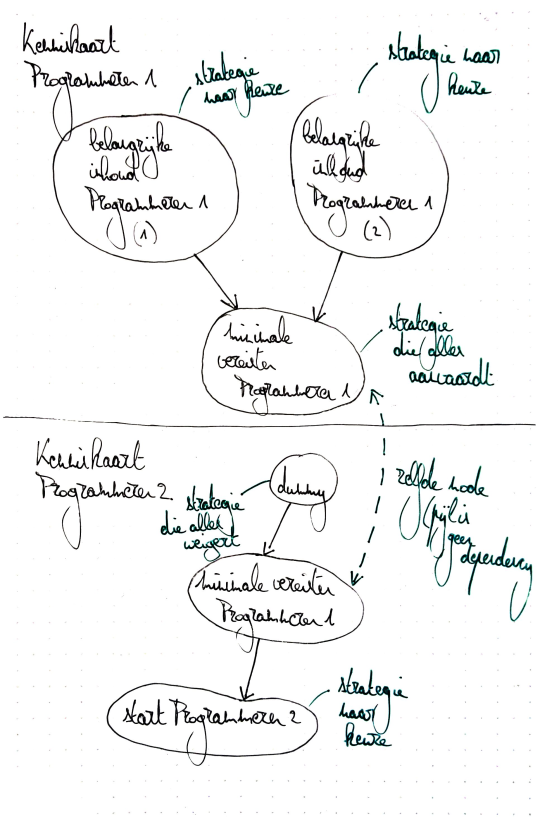 Kenniskaart
Programmeren 1
strategie
naar keuze
strategie naar
keuze
belangrijke
inhoud
Programmeren 1
(1)
belangrijke
inhoud
Programmeren 1
(2)
minimale
vereisten
Programmeren 1
strategie
die alles
aanvaardt
Kenniskaart
Programmeren 2
dummy
strategie
die alles
weigert
zelfde node
(pijl is
geen
dependency
minimale vereisten
Programmeren 1
start Programmeren 2
strategie
naar
keuze